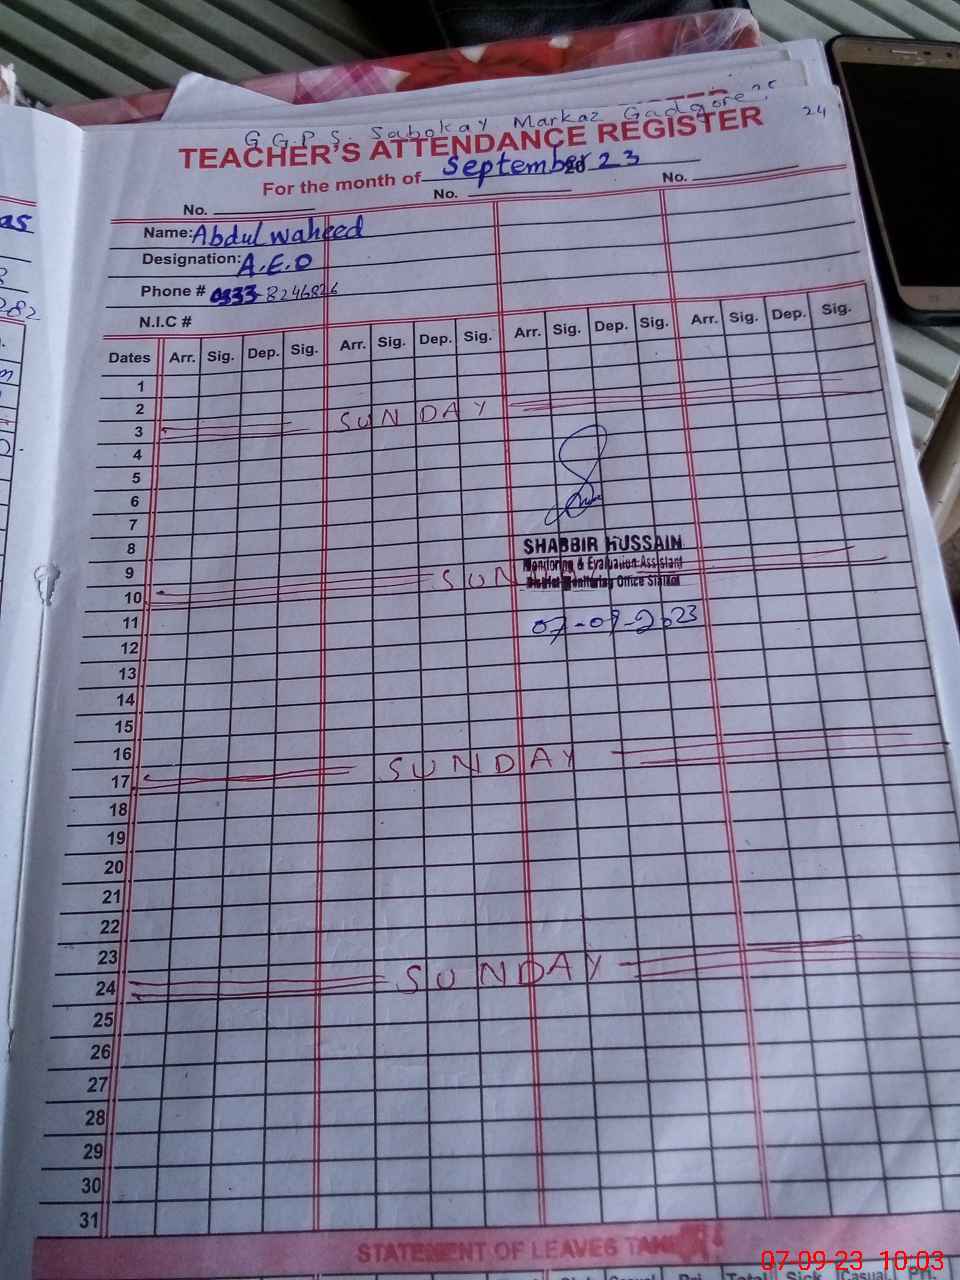 G.G.P.S. Sabokay Markaz Gadgore
24
TEACHER'S ATTENDANCE REGISTER
For the month of September 20 23
No. No. No.
Name: Abdul waheed
Designation: A.E.O
Phone # 0333-8246826
N.I.C #
Dates Arr. Sig. Dep. Sig. Arr. Sig. Dep. Sig. Arr. Sig. Dep. Sig. Arr. Sig. Dep. Sig.
1
2
3 SUNDAY
4
5
6
7
8 SHABBIR HUSSAIN
9 Monitoring & Evaluation Assistant
10 SUN District Monitoring Office Sialkot
11 07-09-2023
12
13
14
15
16
17 SUNDAY
18
19
20
21
22
23
24 SUNDAY
25
26
27
28
29
30
31
STATEMENT OF LEAVES TAK
07-09-23 10:03
Total Sick Casual Pri.
as
282